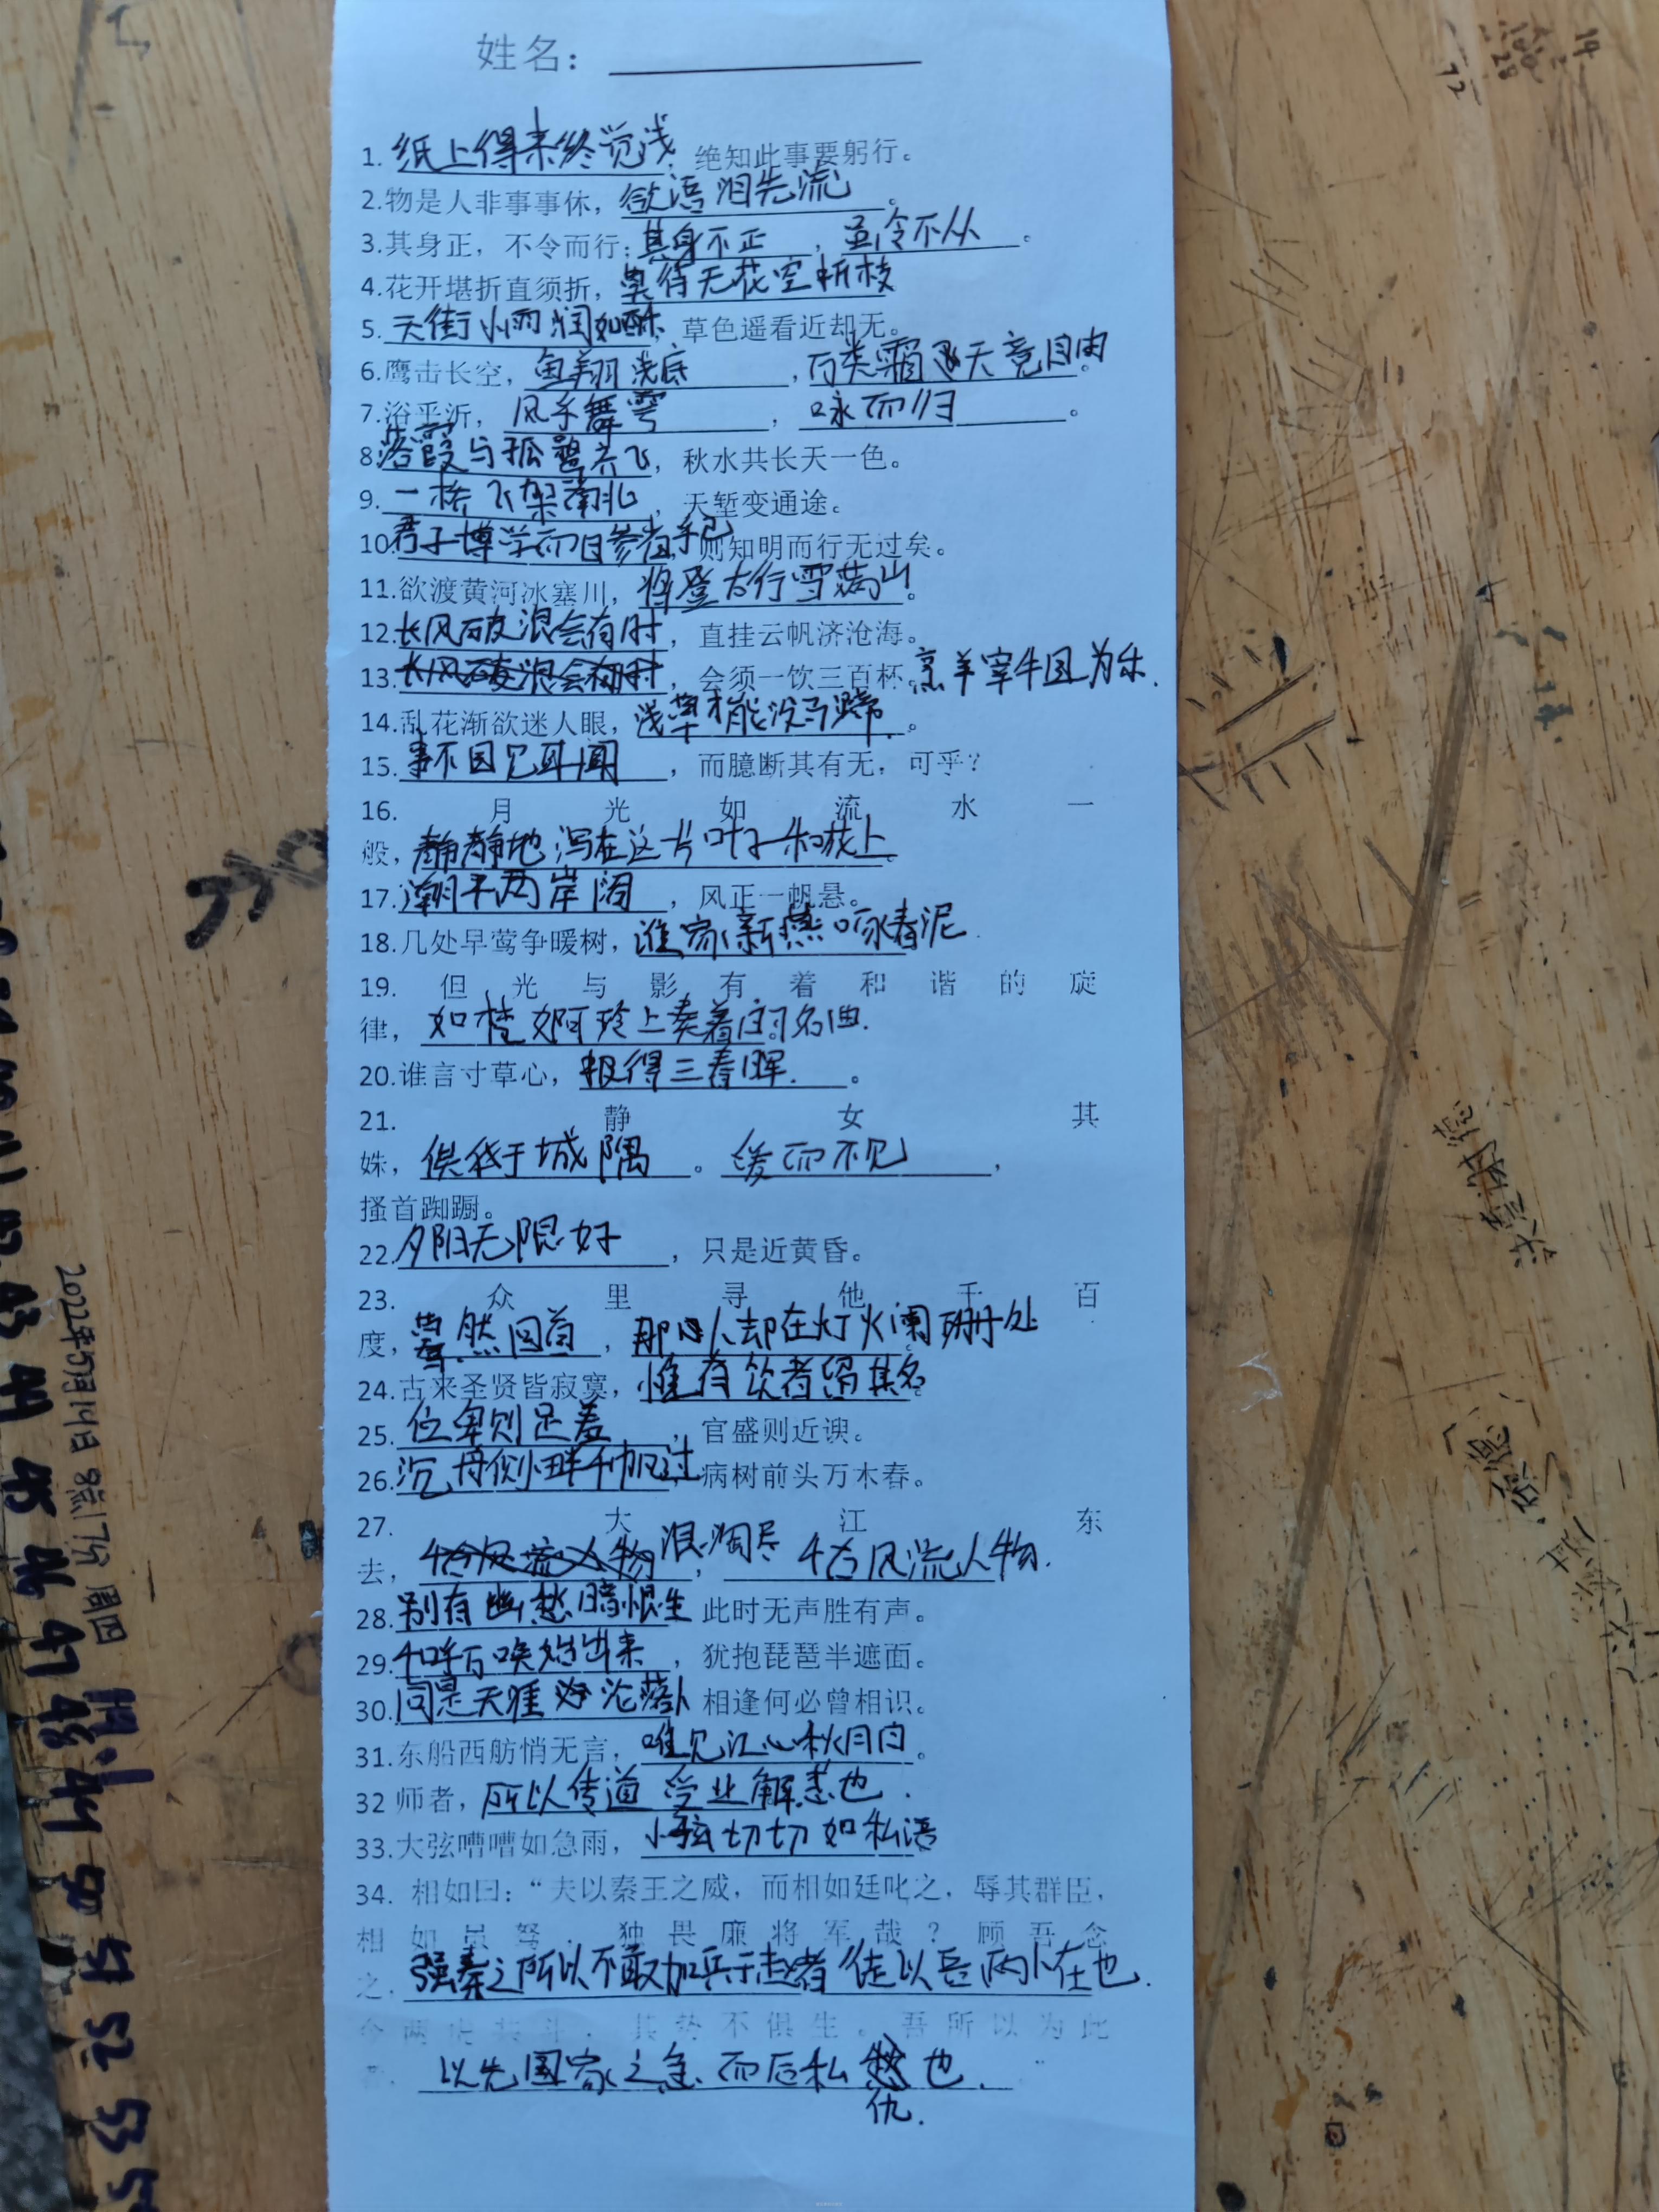 姓名：
1. 纸上得来终觉浅，绝知此事要躬行。
2.物是人非事事休，欲语泪先流。
3.其身正，不令而行；其身不正，虽令不从。
4.花开堪折直须折，莫待无花空折枝
5. 天街小雨润如酥，草色遥看近却无。
6.鹰击长空，鱼翔浅底，万类霜天竞自由。
7.浴乎沂，风乎舞雩，咏而归。
8.落霞与孤鹜齐飞，秋水共长天一色。
9. 一桥飞架南北，天堑变通途。
10.君子博学而日参省乎己，则知明而行无过矣。
11.欲渡黄河冰塞川，将登太行雪满山。
12.长风破浪会有时，直挂云帆济沧海。
13.长风破浪会有时，会须一饮三百杯。烹羊宰牛且为乐.
14.乱花渐欲迷人眼，浅草才能没马蹄。
15.事不目见耳闻，而臆断其有无，可乎？
16. 月光如流水一
般，静静地泻在这一片叶子和花上。
17.潮平两岸阔，风正一帆悬。
18.几处早莺争暖树，谁家新燕啄春泥
19. 但光与影有着和谐的旋
律，如梵婀玲上奏着的名曲.
20.谁言寸草心，报得三春晖。
21. 静女其
姝，俟我于城隅。爱而不见，
搔首踟蹰。
22.夕阳无限好，只是近黄昏。
23. 众里寻他千百
度，蓦然回首，那人却在灯火阑珊处
24.古来圣贤皆寂寞，惟有饮者留其名。
25.位卑则足羞，官盛则近谀。
26.沉舟侧畔千帆过，病树前头万木春。
27. 大江东
去，千古风流人物浪淘尽，千古风流人物.
28.别有幽愁暗恨生 此时无声胜有声。
29.千呼万唤始出来，犹抱琵琶半遮面。
30.同是天涯沦落人 相逢何必曾相识。
31.东船西舫悄无言，唯见江心秋月白。
32 师者，所以传道受业解惑也.
33.大弦嘈嘈如急雨，小弦切切如私语
34. 相如曰：“夫以秦王之威，而相如廷叱之，辱其群臣，
相如虽驽，独畏廉将军哉？顾吾念
之，强秦之所以不敢加兵于赵者 徒以吾两人在也.
今两虎共斗，其势不俱生。吾所以为此
者，以先国家之急而后私仇也.”
2022年5月14日 8点17分 周四
43 44 45 46 47 48 49 50 51 52 53